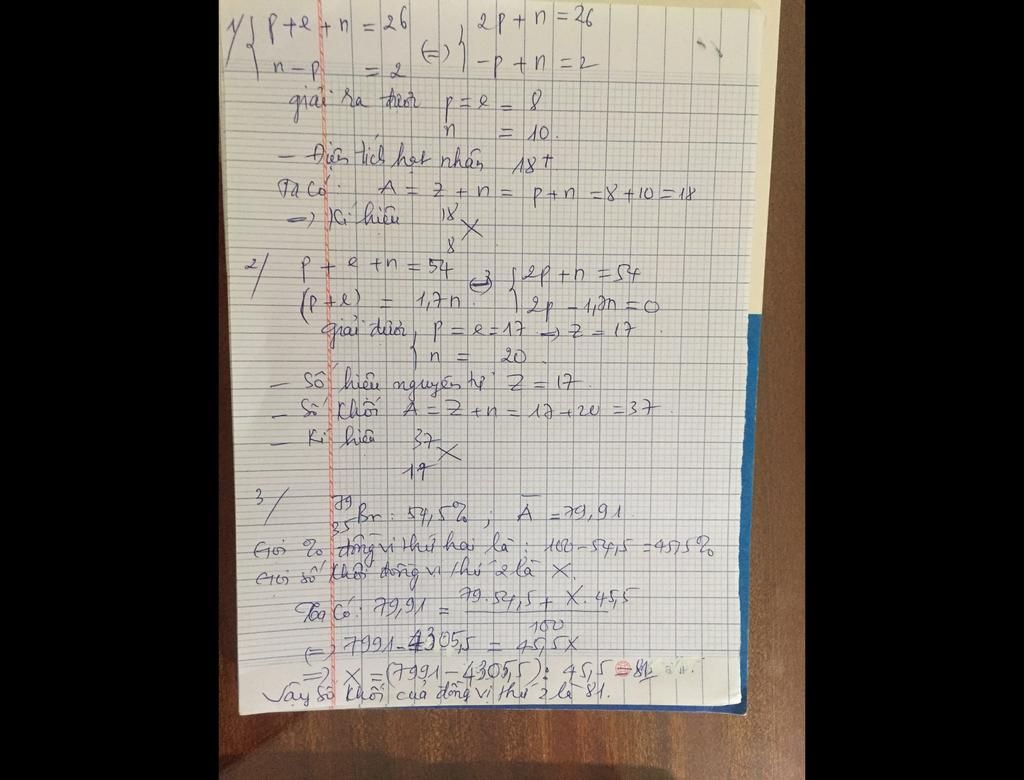 1/ { p + e + n = 26 (=) { 2p + n = 26
n - p = 2 - p + n = 2
giải ra được p = e = 8
n = 10.
- Điện tích hạt nhân 18+
Ta có: A = Z + n = p + n = 8 + 10 = 18
=> Kí hiệu 18 X
8
2/ p + e + n = 54 (=) { 2p + n = 54
(p + e) = 1,7n 2p - 1,7n = 0
giải được { p = e = 17 => Z = 17
n = 20
- Số hiệu nguyên tử Z = 17
- Số khối A = Z + n = 17 + 20 = 37.
- Kí hiệu 37 X
17
3/ 79 Br : 54,5% ; A̅ = 79,91.
35
Gọi % đồng vị thứ hai là : 100 - 54,5 = 45,5%
Gọi số khối đồng vị thứ 2 là X.
Ta có: 79,91 = 79.54,5 + X.45,5
100
(=) 7991 - 4305,5 = 45,5X
=> X = (7991 - 4305,5) : 45,5 = 81
Vậy số khối của đồng vị thứ 2 là 81.